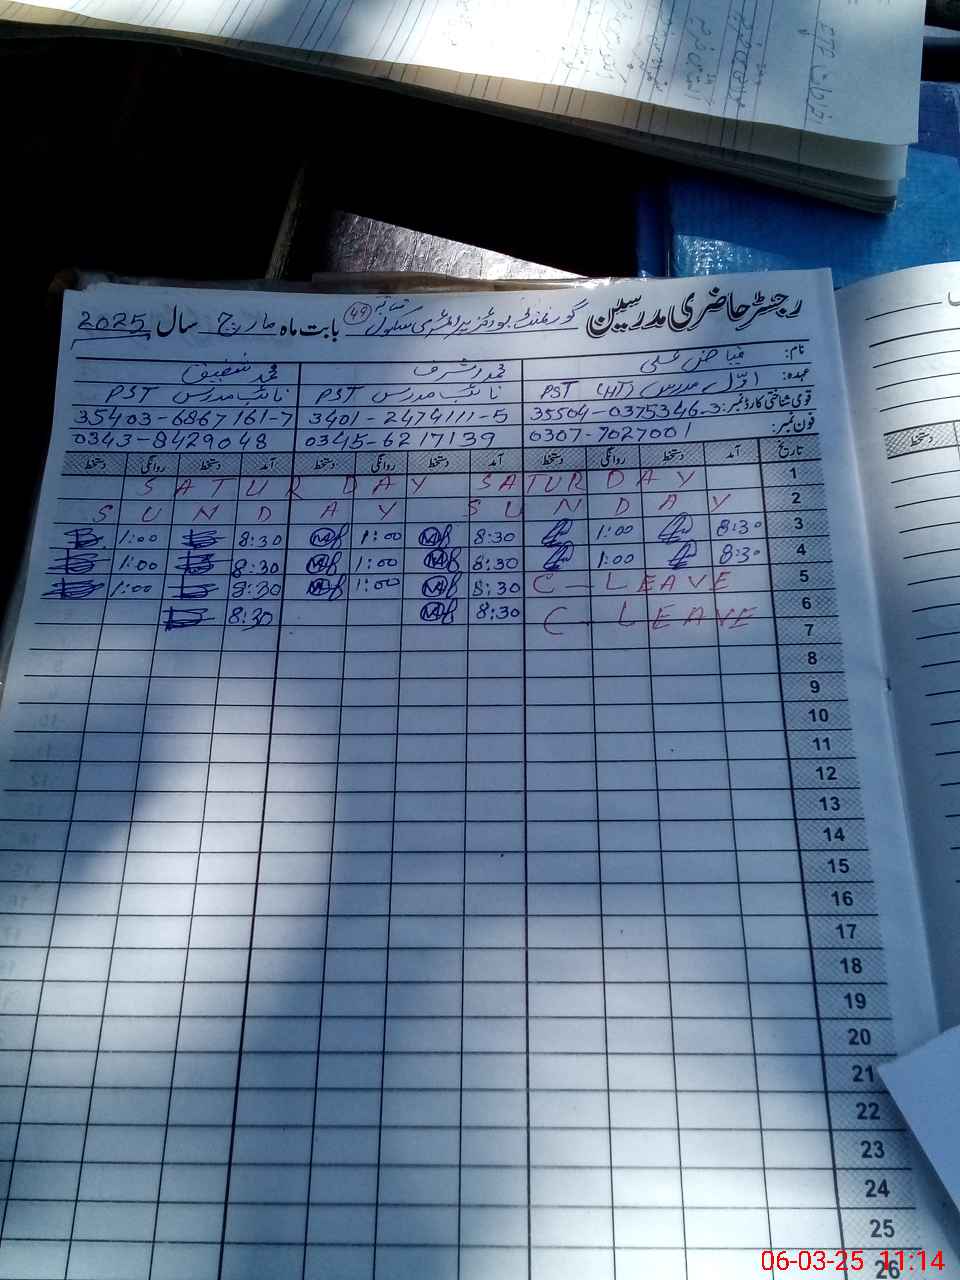 رجسٹر حاضری مدرسین گورنمنٹ بوائز پرائمری سکول 49 بابت ماہ مارچ سال 2025
نام: فیاض علی محمد اشرف محمد شفیق
عہدہ: اوّل مدرس (HT) PST نائب مدرس PST نائب مدرس PST
قومی شناختی کارڈ نمبر: 35504-0375346-3 3401-2474111-5 35403-6867161-7
فون نمبر: 0307-7027001 0345-6217139 0343-8429048
تاریخ آمد دستخط روانگی دستخط آمد دستخط روانگی دستخط آمد دستخط روانگی دستخط
1 SATURDAY SATURDAY
2 SUNDAY SUNDAY
3 8:30 1:00 8:30 1:00 8:30 1:00
4 8:30 1:00 8:30 1:00 8:30 1:00
5 C-LEAVE 8:30 1:00 8:30 1:00
6 C-LEAVE 8:30 8:30
7
8
9
10
11
12
13
14
15
16
17
18
19
20
21
22
23
24
25
26
دستخط
06-03-25 11:14